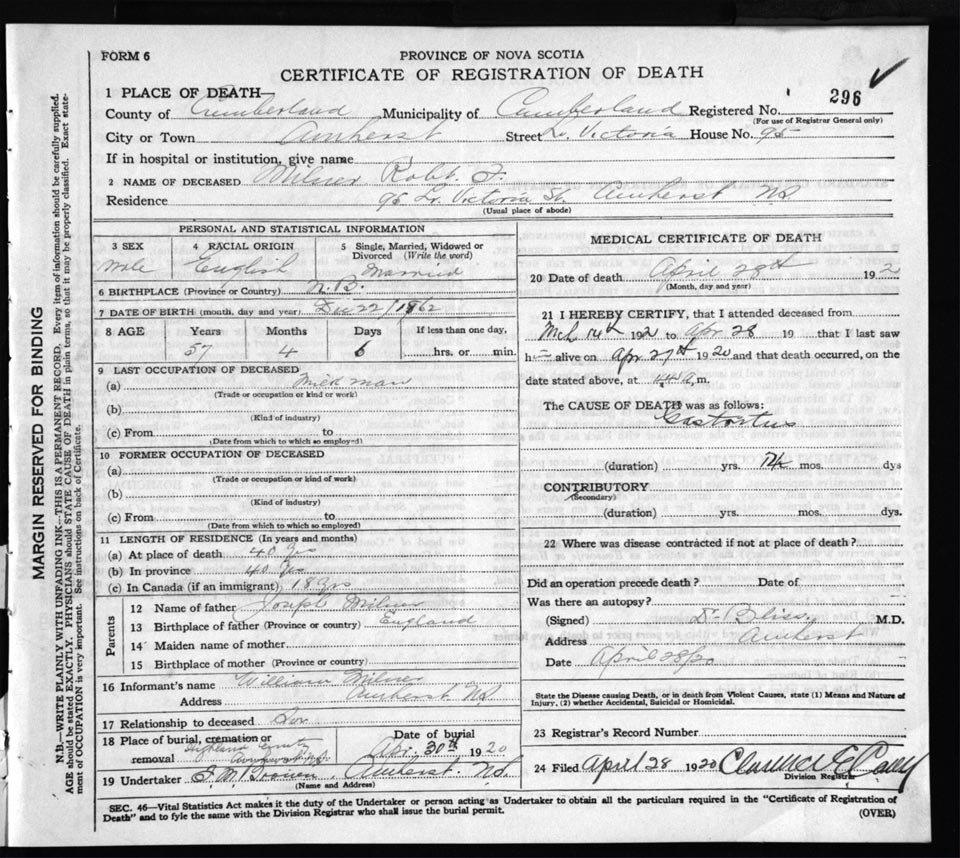 FORM 6
PROVINCE OF NOVA SCOTIA
CERTIFICATE OF REGISTRATION OF DEATH
296
1 PLACE OF DEATH
County of Cumberland Municipality of Cumberland Registered No.
(For use of Registrar General only)
City or Town Amherst Street Lr. Victoria House No. 95
If in hospital or institution, give name
2 NAME OF DECEASED Milner Robt.
Residence 95 Lr. Victoria St. Amherst NS.
(Usual place of abode)
PERSONAL AND STATISTICAL INFORMATION
3 SEX
Male
4 RACIAL ORIGIN
English
5 Single, Married, Widowed or Divorced (Write the word)
Married
6 BIRTHPLACE (Province or Country) N.B.
7 DATE OF BIRTH (month, day and year) Dec 22/1862
8 AGE Years Months Days If less than one day,
57 4 6 hrs. or min.
9 LAST OCCUPATION OF DECEASED
(a) man
(Trade or occupation or kind or work)
(b)
(Kind of industry)
(c) From to
(Date from which to which so employed)
10 FORMER OCCUPATION OF DECEASED
(a)
(Trade or occupation or kind of work)
(b)
(Kind of industry)
(c) From to
(Date from which to which so employed)
11 LENGTH OF RESIDENCE (In years and months)
(a) At place of death 40 yrs
(b) In province 40 yrs
(c) In Canada (if an immigrant)
Parents
12 Name of father Joseph Milner
13 Birthplace of father (Province or country) England
14 Maiden name of mother
15 Birthplace of mother (Province or country)
16 Informant's name William Milner
Address Amherst NS
17 Relationship to deceased Son
18 Place of burial, cremation or removal Highland
Date of burial
Apr. 30th 1920
19 Undertaker Brown, Amherst. NS.
(Name and Address)
MEDICAL CERTIFICATE OF DEATH
20 Date of death April 28th 192
(Month, day and year)
21 I HEREBY CERTIFY, that I attended deceased from
Mch 14th 192 to Apr 28 19 that I last saw
h alive on Apr 27th 1920 and that death occurred, on the
date stated above, at m.
The CAUSE OF DEATH was as follows:
(duration) yrs. mos. dys
CONTRIBUTORY
(Secondary)
(duration) yrs. mos. dys.
22 Where was disease contracted if not at place of death?
Did an operation precede death? Date of
Was there an autopsy?
(Signed) Bliss M.D.
Address Amherst
Date April 28/20
State the Disease causing Death, or in death from Violent Causes, state (1) Means and Nature of
Injury, (2) whether Accidental, Suicidal or Homicidal.
23 Registrar's Record Number
24 Filed April 28 1920 Clarence E
Division Registrar
SEC. 46—Vital Statistics Act makes it the duty of the Undertaker or person acting as Undertaker to obtain all the particulars required in the "Certificate of Registration of
Death" and to fyle the same with the Division Registrar who shall issue the burial permit.
(OVER)
MARGIN RESERVED FOR BINDING
N.B.—WRITE PLAINLY WITH UNFADING INK—THIS IS A PERMANENT RECORD. Every item of information should be carefully supplied.
AGE should be stated EXACTLY. PHYSICIANS should STATE CAUSE OF DEATH in plain terms, so that it may be properly classified. Exact state-
ment of OCCUPATION is very important. See instructions on back of Certificate.